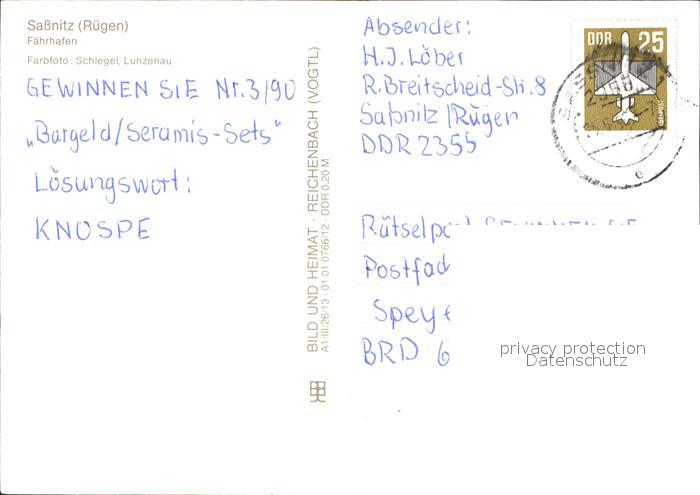 Saßnitz (Rügen)
Fährhafen
Farbfoto: Schlegel, Lunzenau
GEWINNEN SIE Nr.3/90
„Bargeld/Seramis-Sets“
Lösungswort:
KNOSPE
BILD UND HEIMAT · REICHENBACH (VOGTL)
A1/III/26/13 · 01 01 0766/12 · DDR 0,20 M
Absender:
H.J. Löber
R.Breitscheid-Str. 8
Saßnitz/Rügen
DDR 2355
DDR 25
Postfad
Speye
BRD 6
privacy protection
Datenschutz